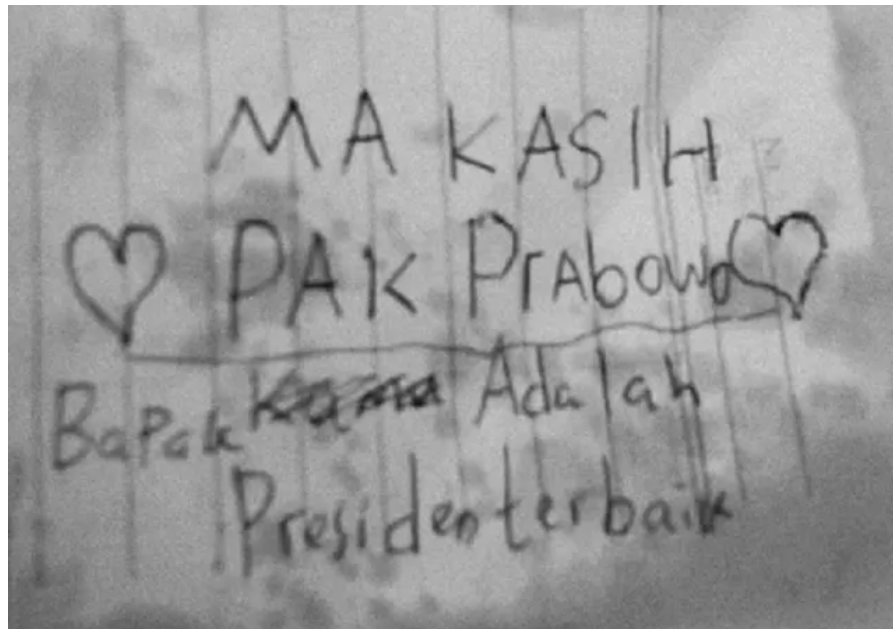 MAKASIH
PAK PrAbowo
Bapak Adalah
Presiden terbaik